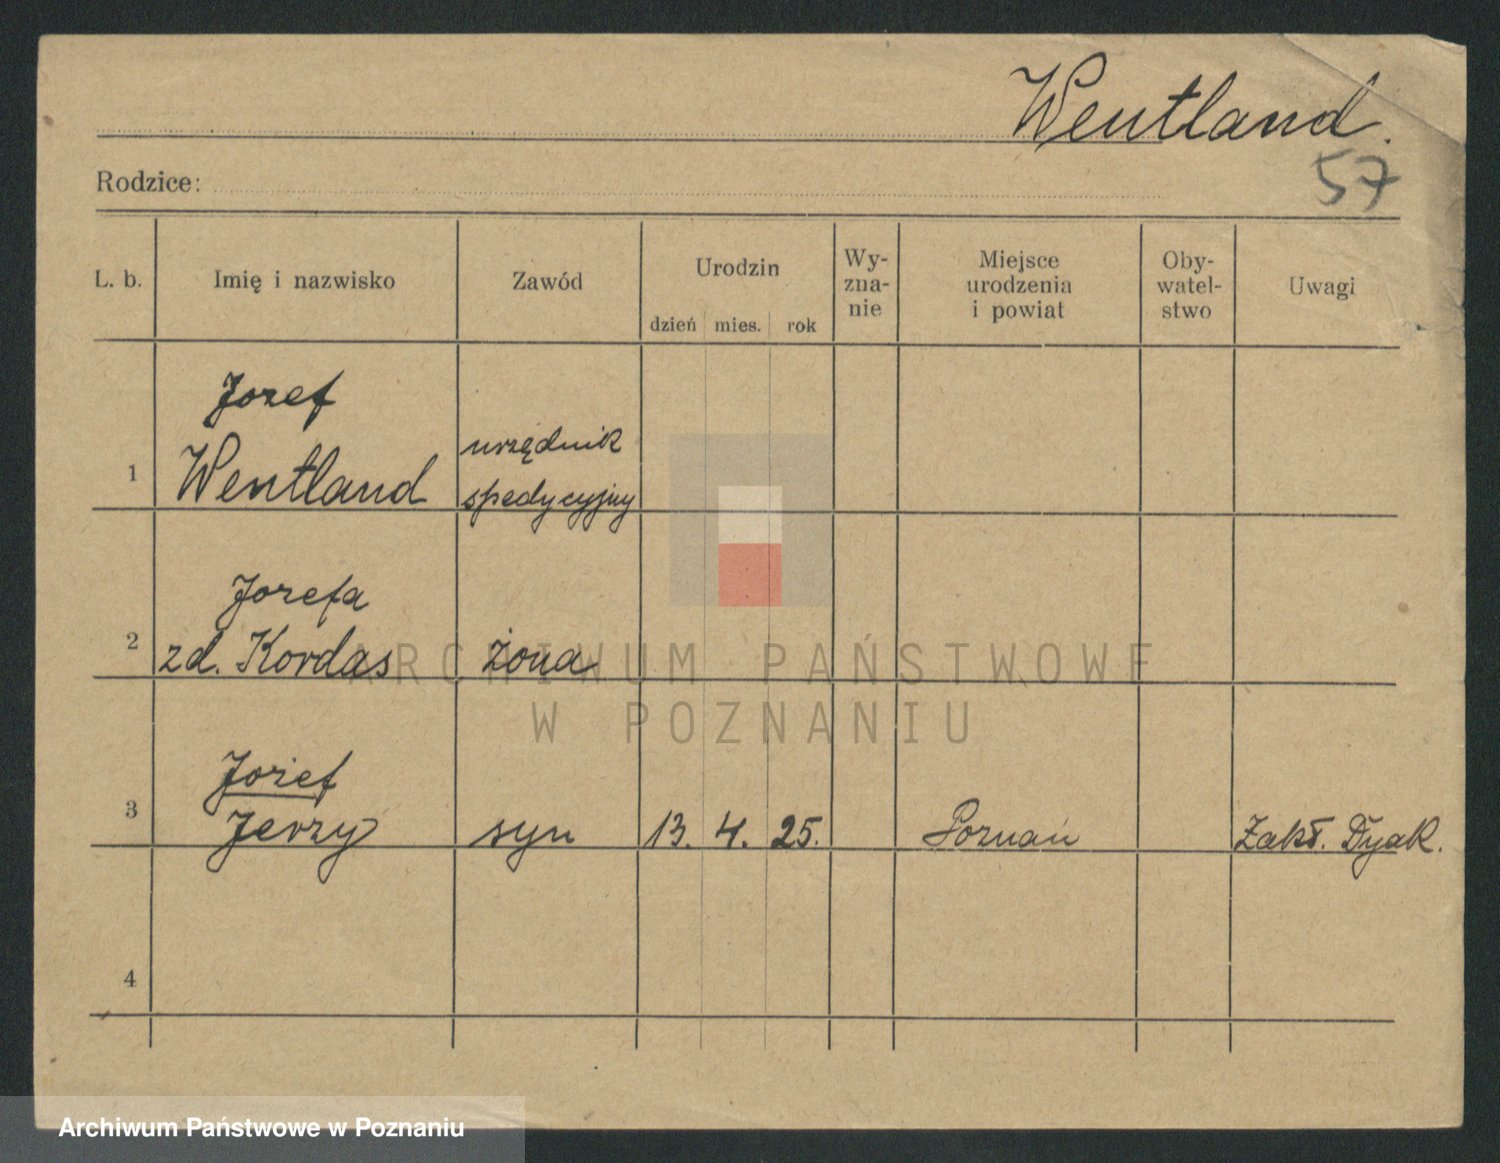 Wentland.
Rodzice:
57
L. b.
Imię i nazwisko
Zawód
Urodzin
dzień mies. rok
Wy-
zna-
nie
Miejsce
urodzenia
i powiat
Oby-
watel-
stwo
Uwagi
1
Jozef
Wentland
urzędnik
spedycyjny
2
Jozefa
zd. Kordas
żona
3
Józef
Jerzy
syn
13. 4. 25.
Poznań
Zakł. Dyak.
4
ARCHIWUM PAŃSTWOWE
W POZNANIU
Archiwum Państwowe w Poznaniu